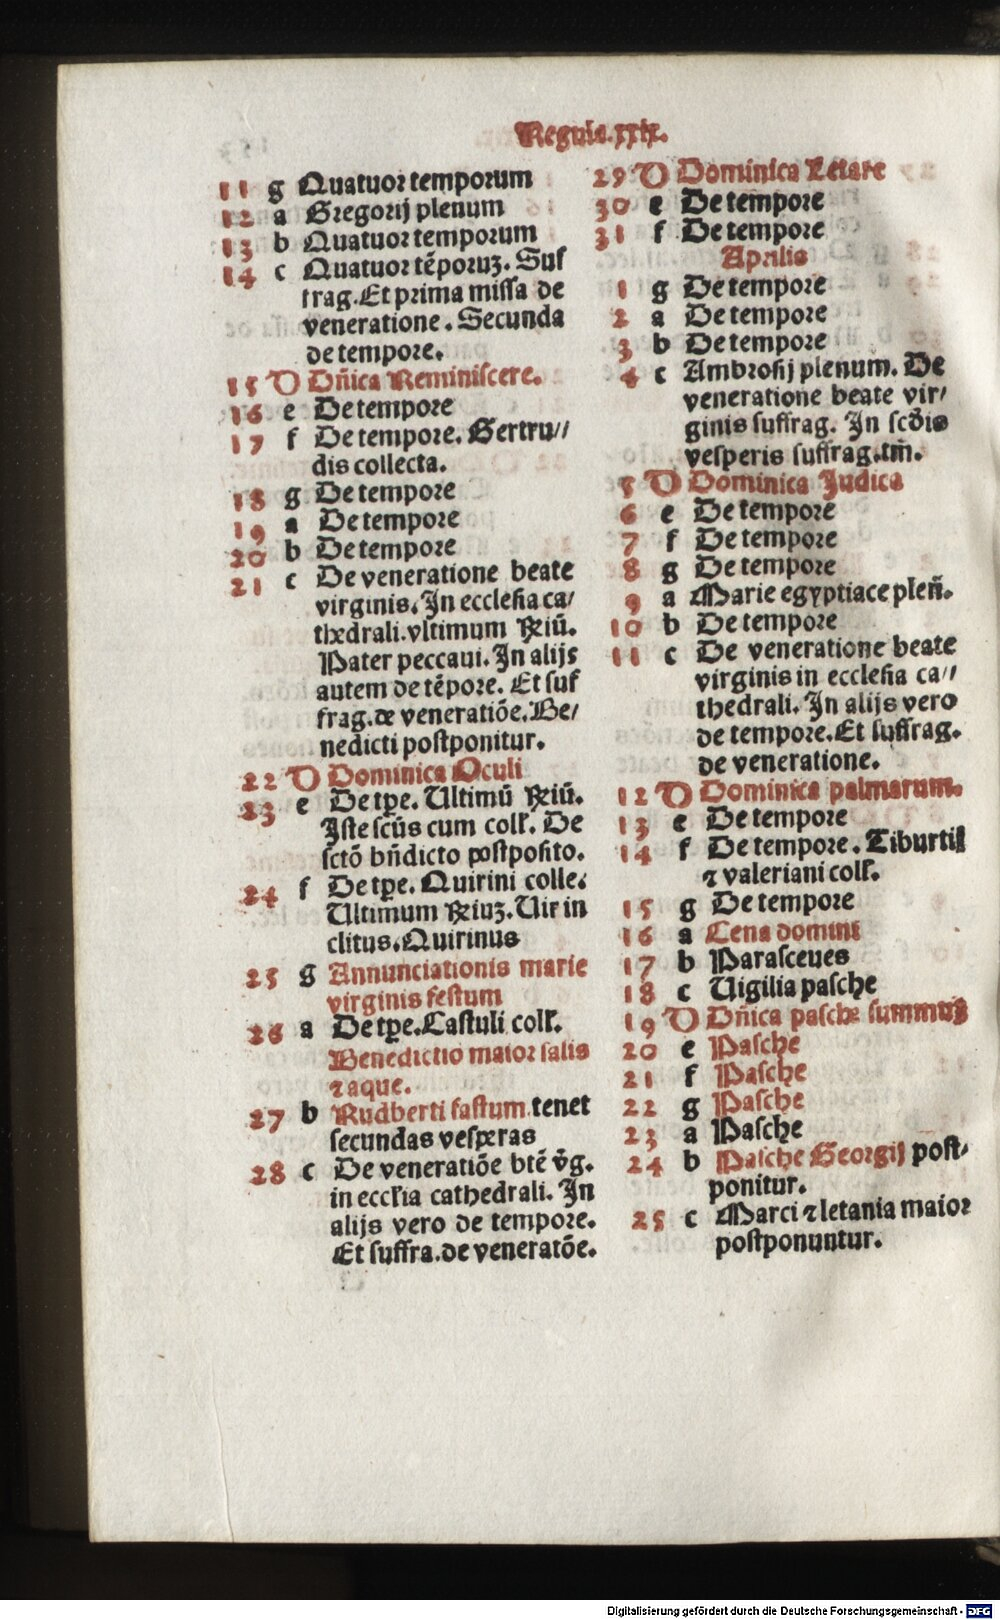 Regula.xxix.
11 g Quatuor temporum
12 a Gregorij plenum
13 b Quatuor temporum
14 c Quatuor tẽporuꝫ. Suf
frag. Et prima missa de
veneratione. Secunda
de tempore.
15 D Dñica Reminiscere.
16 e De tempore
17 f De tempore. Gertru//
dis collecta.
18 g De tempore
19 a De tempore
20 b De tempore
21 c De veneratione beate
virginis. In ecclesia ca/
thedrali. vltimum ꝶiũ.
Pater peccaui. In alijs
autem de tẽpore. Et suf
frag. de veneratiõe. Be/
nedicti postponitur.
22 D Dominica Oculi
23 e De tꝑe. Ultimũ ꝶiũ.
Iste scũs cum colł. De
sctõ bñdicto postposito.
24 f De tꝑe. Quirini colle.
Ultimum ꝶiuꝫ. Uir in
clitus. Quirinus
25 g Annunciationis marie
virginis festum
26 a De tꝑe. Castuli colł.
Benedictio maior salis
⁊ aque.
27 b Rudberti fastum tenet
secundas vesperas
28 c De veneratiõe btẽ v̄g.
in eccłia cathedrali. In
alijs vero de tempore.
Et suffra. de veneratõe.
29 D Dominica Letare
30 e De tempore
31 f De tempore
Aprilis
1 g De tempore
2 a De tempore
3 b De tempore
4 c Ambrosij plenum. De
veneratione beate vir/
ginis suffrag. In scðis
vesperis suffrag. tm̃.
5 D Dominica Judica
6 e De tempore
7 f De tempore
8 g De tempore
9 a Marie egyptiace pleñ.
10 b De tempore
11 c De veneratione beate
virginis in ecclesia ca//
thedrali. In alijs vero
de tempore. Et suffrag.
de veneratione.
12 D Dominica palmarum.
13 e De tempore
14 f De tempore. Tiburtij
⁊ valeriani colł.
15 g De tempore
16 a Cena domini
17 b Parasceues
18 c Uigilia pasche
19 D Dñica pasche summus
20 e Pasche
21 f Pasche
22 g Pasche
23 a Pasche
24 b Pasche Georgij post/
ponitur.
25 c Marci ⁊ letania maior
postponuntur.
Digitalisierung gefördert durch die Deutsche Forschungsgemeinschaft - DFG